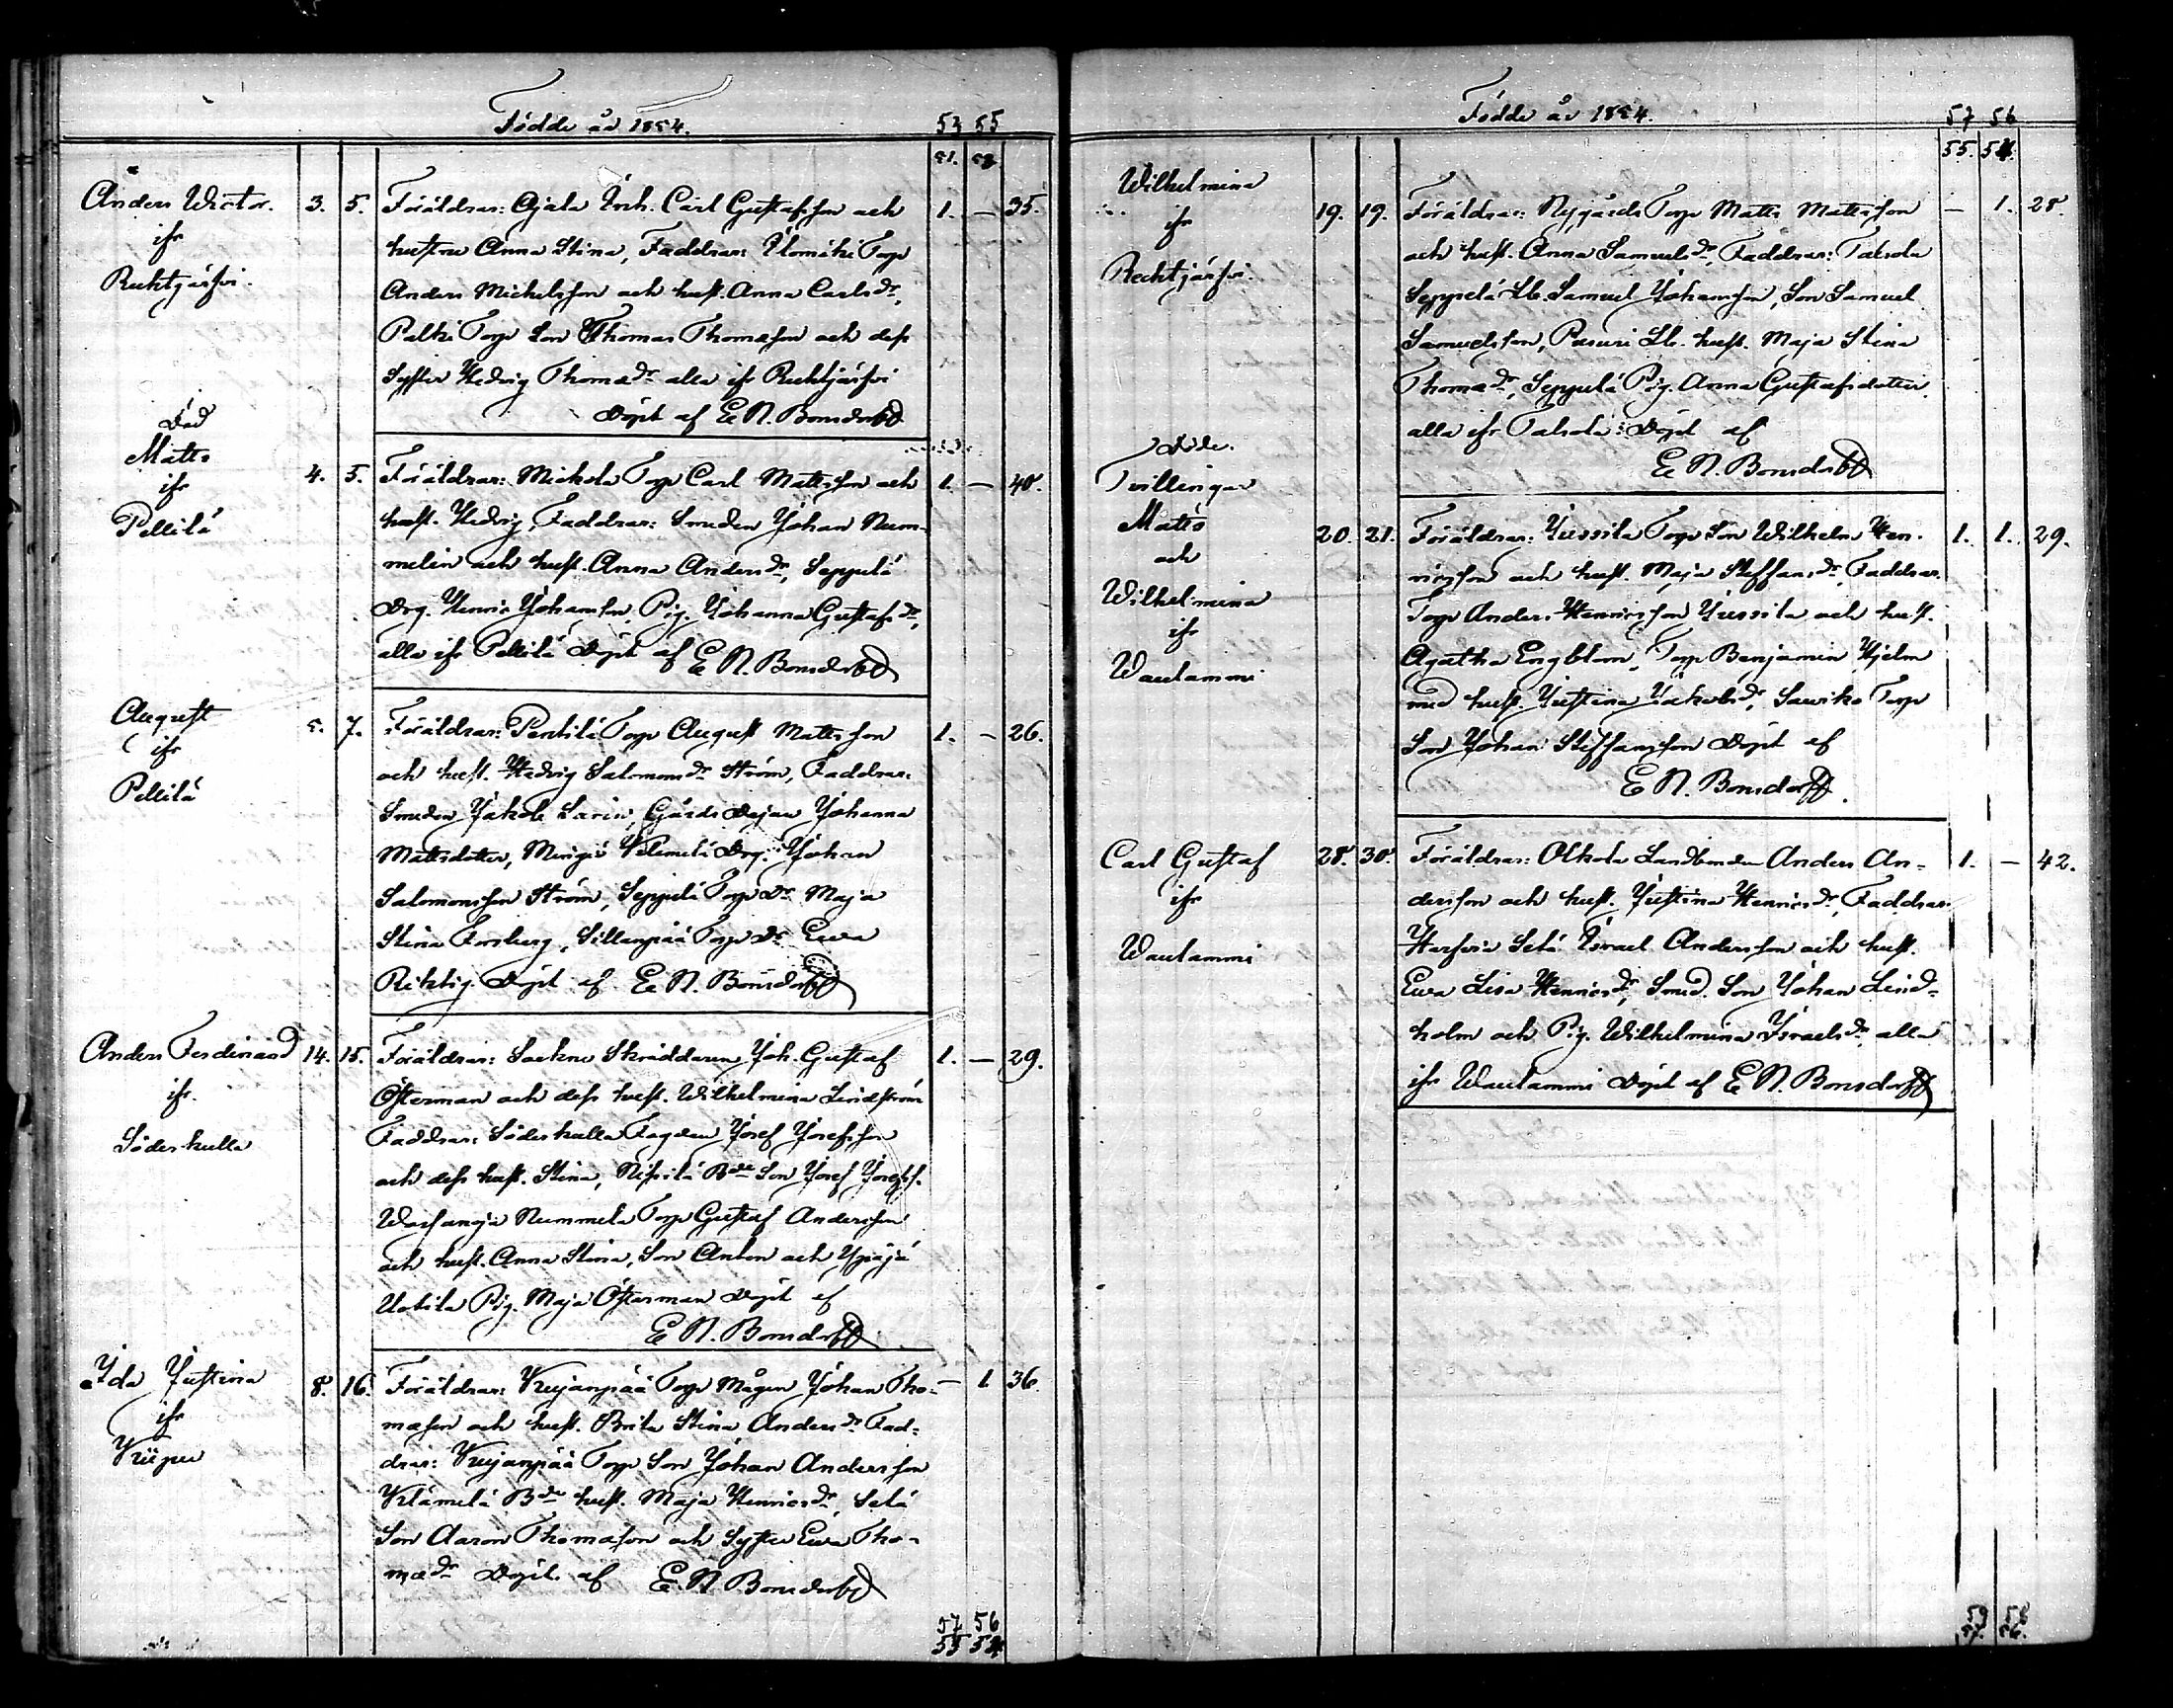 Födde år 1854. 53 55
51. 53
Anders Wictor. 3. 5. Föräldrar: Ojala Inh. Carl Gustafsson och 1. — 35.
ifr
hustru Anna Stina, Faddrar: Ylomäki Torp
Ruhtjärfvi.
Anders Michelsson och hust. Anna Carlsdr,
Palki Torp Son Thomas Thomasson och dess
Syster Hedvig Thomædr alla ifr Ruhtjärfvi
Döpt af E N. Bonsdorff
Död
Matts
ifr
Pellilä
4. 5. Föräldrar: Mickola Torp Carl Mattsson och 1. — 40.
hust. Hedvig, Faddrar: Smeden Johan Num-
melin och hust. Anna Andersdr, Seppälä
Drg. Henric Johansson, Pig. Johanna Gustafsdr,
alla ifr Pellilä Döpt af E N. Bonsdorff
August
ifr
Pellilä
5. 7. Föräldrar: Pentilä Torp August Mattsson 1. — 26.
och hust. Hedvig Salomonsdr Ström, Faddrar:
Smeden Jakob Larin, Gårds Dejan Johanna
Mattsdotter, Drg. Johan
Salomonsson Ström, Seppälä Torp Dr Maja
Stina Forsberg, Sillanpää Torp Dr Ewa
Riktig. Döpt af E N. Bonsdorff
Anders Ferdinand 14. 15. Föräldrar: Sockne Skräddaren Joh. Gustaf 1. — 29.
ifr.
Söderkulla
Österman och dess hust. Wilhelmina Lindström
Faddrar: Söderkulla Fogden Josef Josefsson
och dess hust. Stina, Bde Son Josef Josefss.
Nummela Torp Gustaf Andersson
och hust. Anna Stina, Son Anton och Ypäjä
Uotila Pig. Maja Österman Döpt af
E N. Bonsdorff
Ida Justina 8. 16. Föräldrar: Kujanpää Torp Mågen Johan Tho- — 1 36.
ifr
Kiipu
masson och hust. Brita Stina Andersdr Fad-
drar: Kujanpää Torp Son Johan Andersson
Klämelä Bde hust. Maja Henricsdr, Setä
Son Aaron Thomasson och Syster Ewa Tho-
mædr Döpt. af E. N Bonsdorff
57 56
55 54
Födde år 1854. 57 56
55. 54.
Wilhelmina
ifr
Rechtjärfvi.
19. 19. Föräldrar: Nygårds Torp Matts Mattsson — 1. 28.
och hust. Anna Samuelsdr, Faddrar: Talsola
Seppelä Lb. Samuel Johansson, Son Samuel
Samuelsson, Pasuri Lb. hust. Maja Stina
Thomædr, Seppälä Pig. Anna Gustafsdotter,
alla ifr Talsola: Döpt af
E N. Bonsdorff
Döde.
Tvillingar
Matts
och
Wilhelmina
ifr
Waulammi
20. 21. Föräldrar: Jussila Torp Son Wilhelm Hen- 1. 1. 29.
ricsson och hust. Maja Steffansdr, Faddrar.
Torp Anders Henricsson Jussila och hust.
Agatha Engblom, Torp Benjamin Hjelm
med hust. Justina Jakobsdr, Sawiko Torp
Son Johan Steffansson Döpt af
E N. Bonsdorff.
Carl Gustaf 28. 30. Föräldrar: Olkola Landbonden Anders An- 1. — 42.
ifr
Waulammi
dersson och hust. Justina Henricsdr, Faddrar
Setä Israel Andersson och hust.
Ewa Lisa Henricsdr, Smed. Son Johan Lind-
holm och Pig. Wilhelmina Israelsdr, alla
ifr Waulammi Döpt af E N. Bonsdorff
59 58
57. 56.